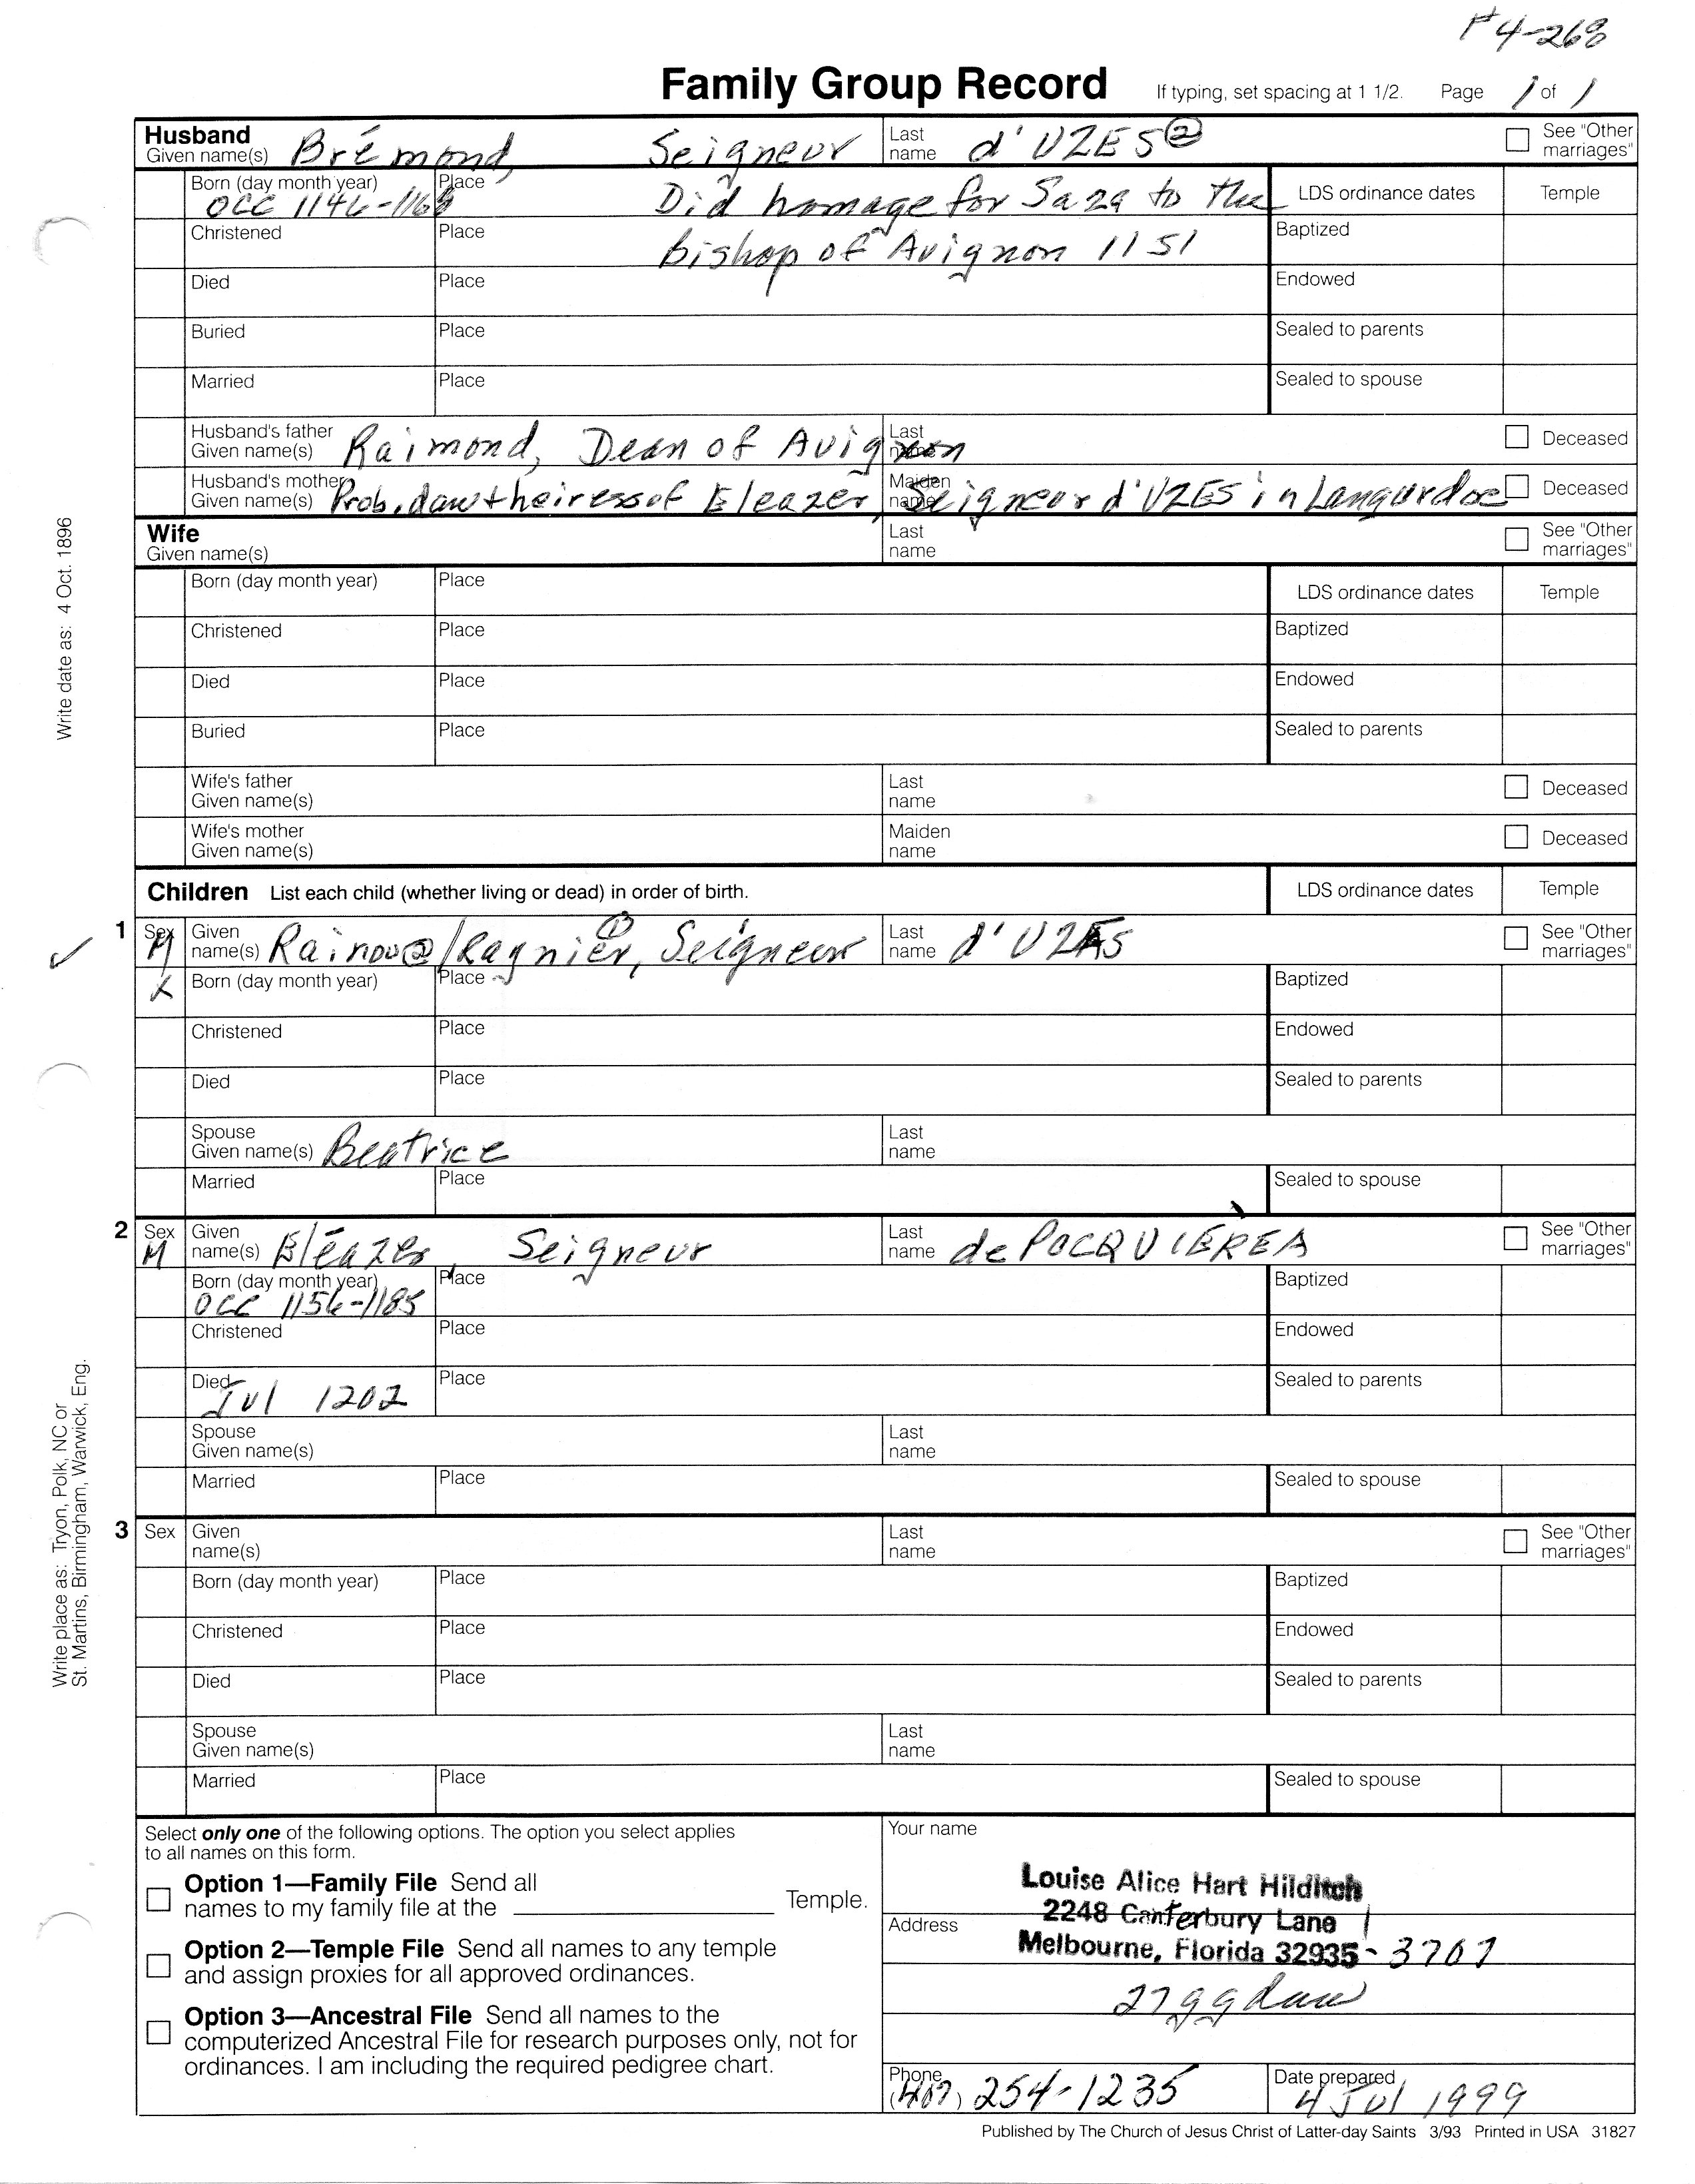 Family Group Record If typing, set spacing at 1 1/2. Page 1 of 1
Husband
Given name(s) Brémond, Seigneur Last name d'UZES ②
See "Other marriages"
Born (day month year) OCC 1146-1168 Place Did homage for Saza to the LDS ordinance dates Temple
Christened Place Bishop of Avignon 1151 Baptized
Died Place Endowed
Buried Place Sealed to parents
Married Place Sealed to spouse
Husband's father Given name(s) Raimond, Dean of Avignon Last name Deceased
Husband's mother Given name(s) Prob. dau + heiress of Eleazer, Maiden name Seigneur d'UZES in Deceased
Wife
Given name(s) Last name See "Other marriages"
Born (day month year) Place LDS ordinance dates Temple
Christened Place Baptized
Died Place Endowed
Buried Place Sealed to parents
Wife's father Given name(s) Last name Deceased
Wife's mother Given name(s) Maiden name Deceased
Children List each child (whether living or dead) in order of birth. LDS ordinance dates Temple
1 Sex M Given name(s) Seigneur Last name See "Other marriages"
X Born (day month year) Place Baptized
Christened Place Endowed
Died Place Sealed to parents
Spouse Given name(s) Beatrice Last name
Married Place Sealed to spouse
2 Sex M Given name(s) Eléazer, Seigneur Last name de See "Other marriages"
Born (day month year) OCC 1156-1185 Place Baptized
Christened Place Endowed
Died Jul 1202 Place Sealed to parents
Spouse Given name(s) Last name
Married Place Sealed to spouse
3 Sex Given name(s) Last name See "Other marriages"
Born (day month year) Place Baptized
Christened Place Endowed
Died Place Sealed to parents
Spouse Given name(s) Last name
Married Place Sealed to spouse
Write date as: 4 Oct. 1896
Write place as: Tryon, Polk, NC or
St. Martins, Birmingham, Warwick, Eng.
Select only one of the following options. The option you select applies
to all names on this form.
Option 1—Family File Send all
names to my family file at the Temple.
Option 2—Temple File Send all names to any temple
and assign proxies for all approved ordinances.
Option 3—Ancestral File Send all names to the
computerized Ancestral File for research purposes only, not for
ordinances. I am including the required pedigree chart.
Your name
Louise Alice Hart Hilditch
Address 2248 Canterbury Lane
Melbourne, Florida 32935-3707
27 gg dau
Phone (407) 254-1235 Date prepared 4 Jul 1999
Published by The Church of Jesus Christ of Latter-day Saints 3/93 Printed in USA 31827